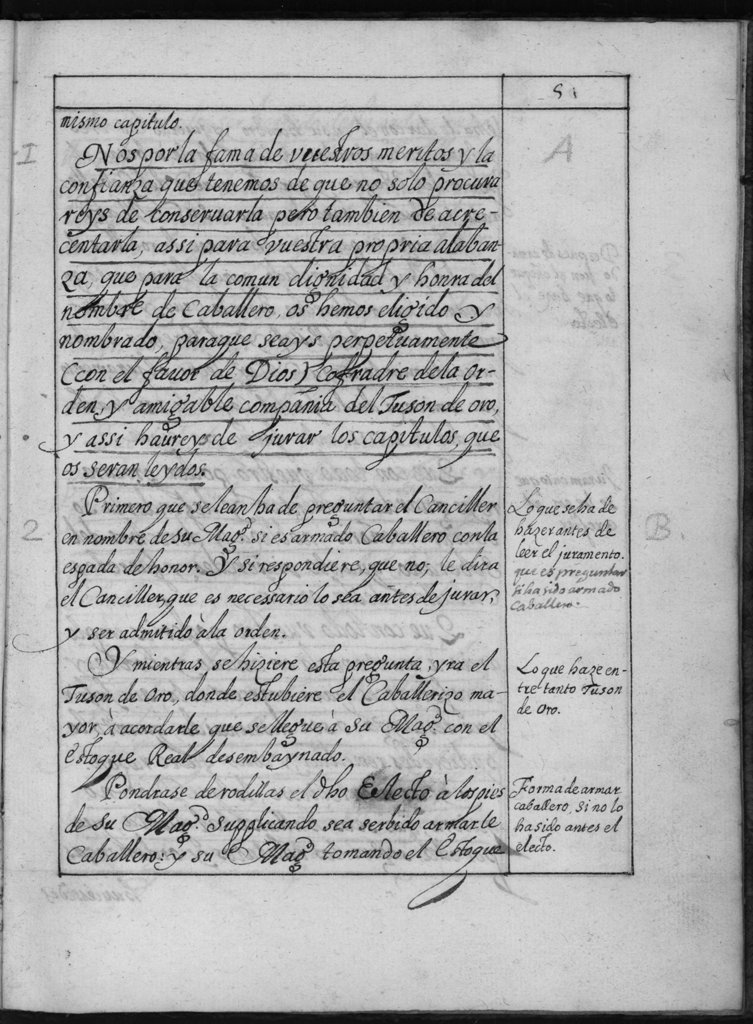 5
mismo capitulo.
1
A
Nos por la fama de vuestros meritos y la
confianza que tenemos de que no solo procura
reys de conseruarla pero tambien de acre-
centarla, assi para vuestra propria alaban-
za, que para la comun dignidad y honra del
nombre de Caballero, os hemos eligido y
nombrado, paraque seays perpetuamente
(con el fauor de Dios) cofradre dela or-
den, y amigable compania del Tuson de oro,
y assi haureys de jurar los capitulos, que
os seran leydos.
2
B.
Primero que se lean ha de preguntar el Canciller
en nombre de su Magd. si es armado Caballero con la
espada de honor. Y si respondiere, que no, le dira
el Canciller, que es necessario lo sea antes de jurar,
y ser admitido à la orden.
Lo que se ha de
hazer antes de
leer el juramento.
que es preguntar
si ha sido armado
Caballero.
Y mientras se hiziere esta pregunta, yra el
Tuson de Oro, donde estubiere el Caballerizo ma-
yor, à acordarle que se llegue à su Magd. con el
estoque Real desembaynado.
Lo que haze en-
tre tanto Tuson
de Oro.
Pondrase de rodillas el dho Electo à los pies
de su Magd. supplicando sea serbido armarle
Caballero: y su Magd. tomando el Estoque
Forma de armar
caballero, si no lo
ha sido antes el
electo.